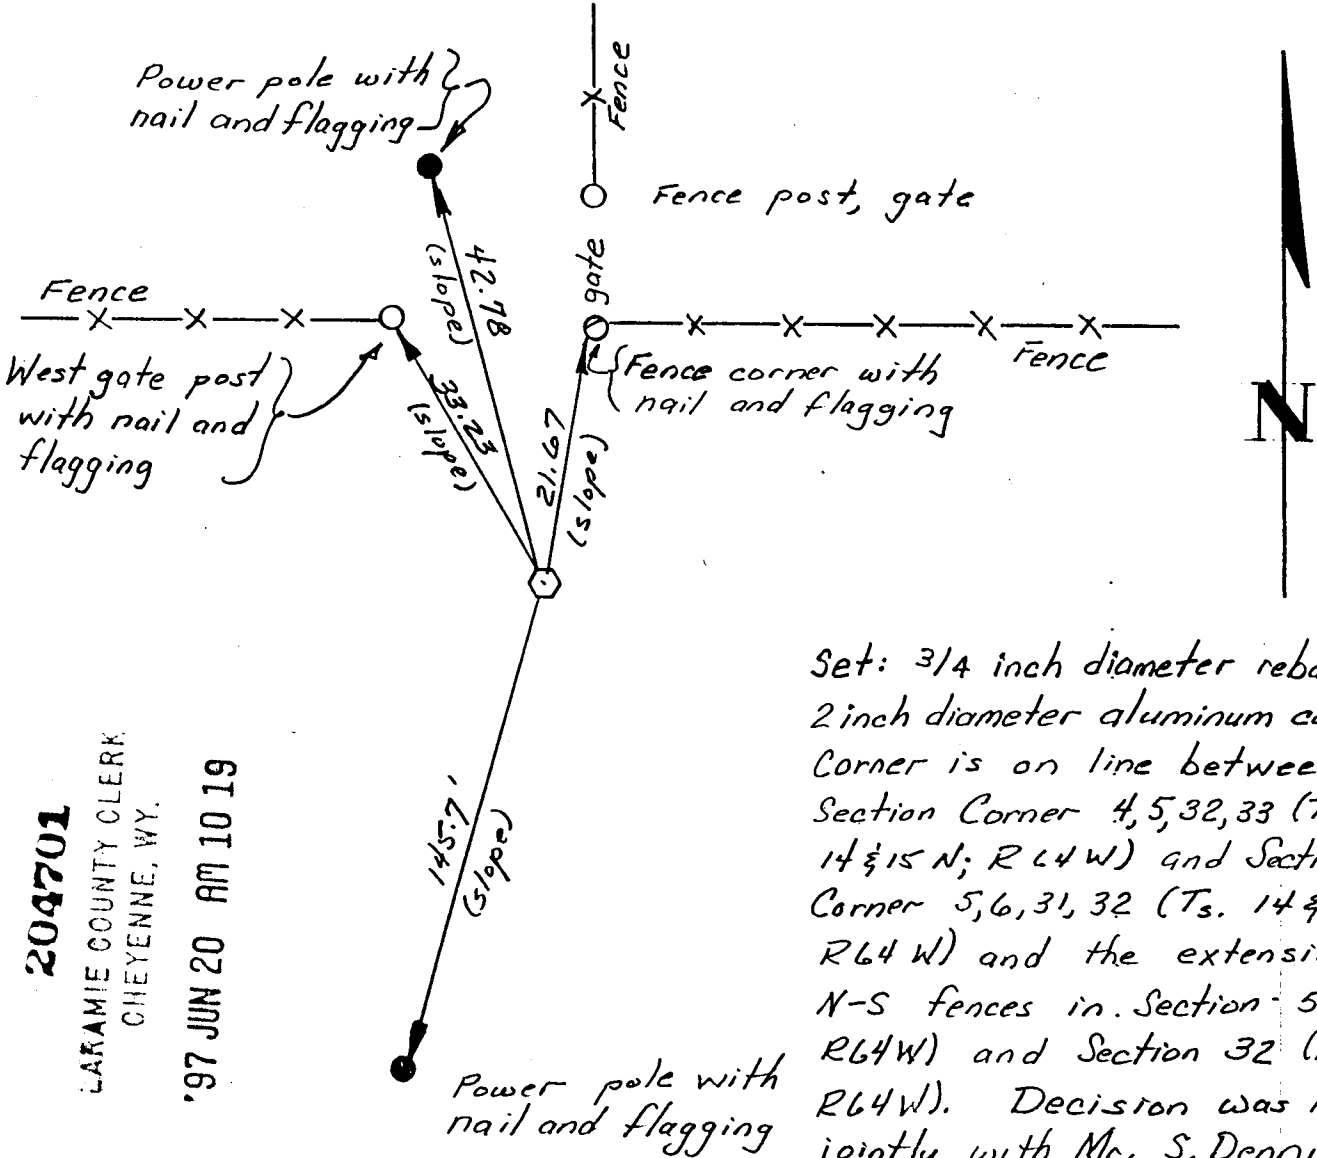 Power pole with
nail and flagging
Fence
Fence post, gate
gate
Fence
42.78
(slope)
33.23
(slope)
21.67
(slope)
West gate post
with nail and
flagging
Fence corner with
nail and flagging
Fence
N
145.7'
(slope)
Power pole with
nail and flagging
204701
LARAMIE COUNTY CLERK
CHEYENNE, WY.
'97 JUN 20 AM 10 19
Set: 3/4 inch diameter
2 inch diameter aluminum
Corner is on line
Section Corner 4,5,32,33
14 & 15 N; R64W) and
Corner 5,6,31,32 (Ts. 14 &
R64W) and the
N-S fences in Section 5
R64W) and Section 32
R64W). Decision was
jointly with Mr. S.